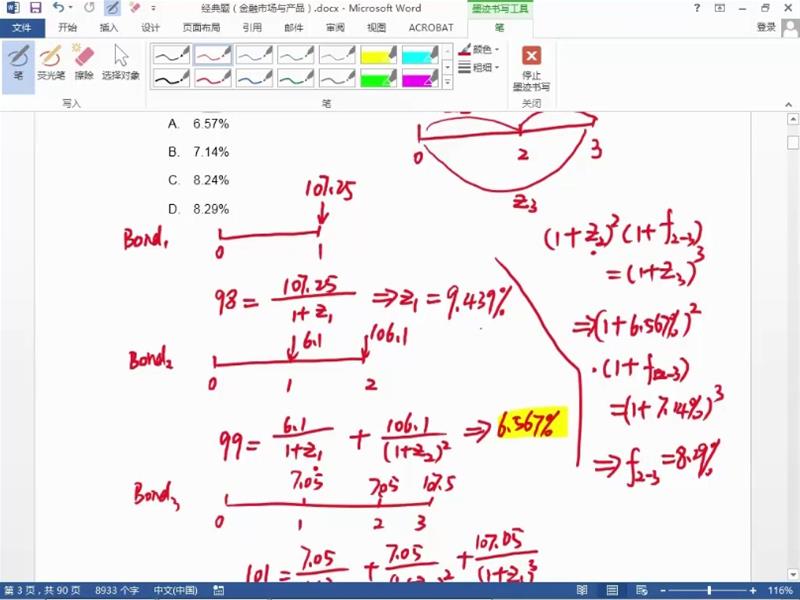 经典题（金融市场与产品）.docx - Microsoft Word
墨迹书写工具
文件 开始 插入 设计 页面布局 引用 邮件 审阅 视图 ACROBAT 笔 登录
笔 荧光笔 擦除 选择对象 颜色 粗细 停止墨迹书写
写入 笔 关闭
A. 6.57%
B. 7.14%
C. 8.24%
D. 8.29%
0 2 3
Z3
107.25
Bond1
0 1
98 = 107.25 / 1+Z1 ⇒ Z1 = 9.439%
6.1 106.1
Bond2
0 1 2
99 = 6.1 / 1+Z1 + 106.1 / (1+Z2)^2 ⇒ 6.567%
7.05 7.05 107.5
Bond3
0 1 2 3
101 = 7.05 + 7.05 + 107.05 / (1+Z3)^3
(1+Z2)^2 (1+f2-3)
= (1+Z3)^3
⇒ (1+6.567%)^2
· (1+f2-3)
= (1+7.14%)^3
⇒ f2-3 = 8.29%
第 3 页，共 90 页 8933 个字 中文(中国) 116%